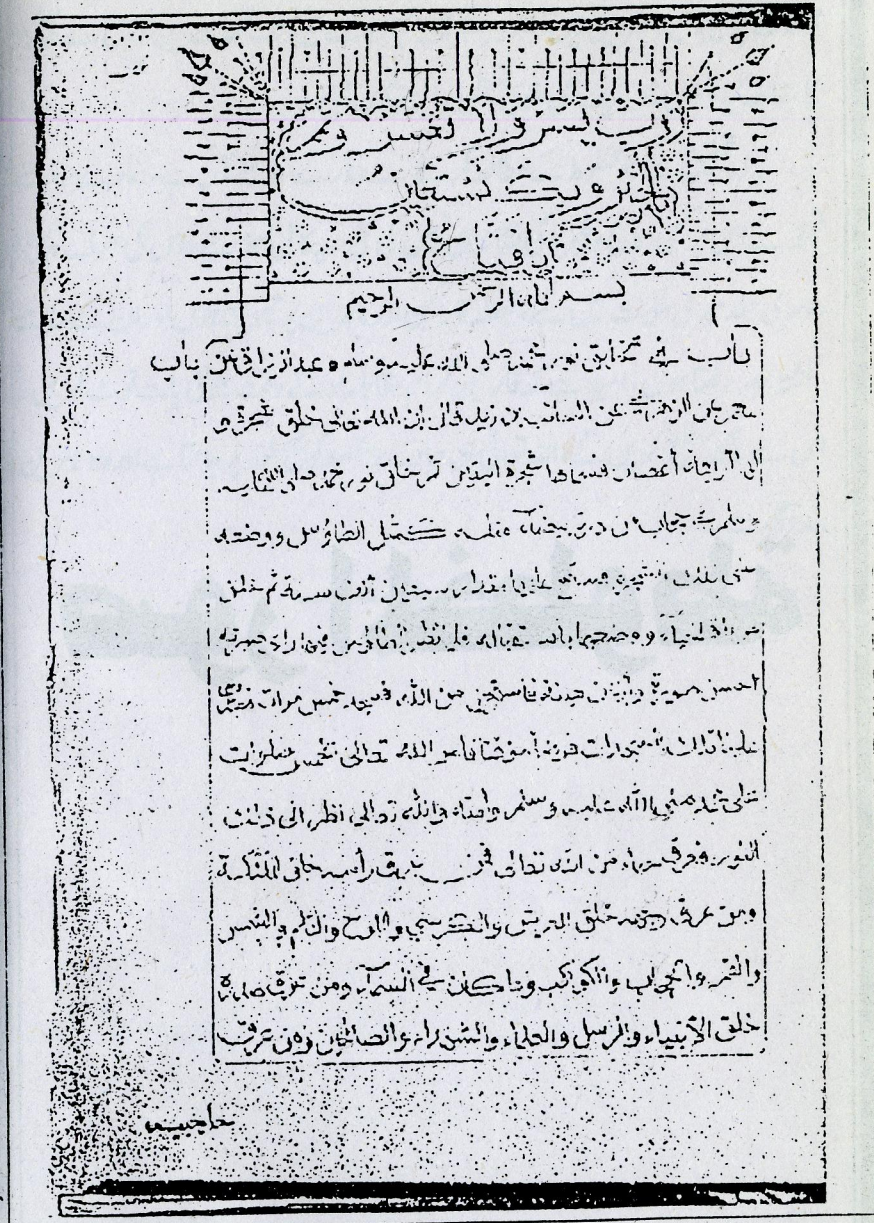 رب يسر ولا تعسر وتمم
بالخير وبك نستعين
يا فتاح
بسم الله الرحمن الرحيم
باب في تخليق نور محمد صلى الله عليه وسلم عبد الرزاق عن
عن السائب بن زيد قال إن الله تعالى خلق شجرة و
أغصان فسماها شجرة اليقين ثم خلق نور محمد صلى الله عليه
وسلم في حجاب من درة بيضاء مثله كمثل الطاؤس ووضعه
على تلك الشجرة فسبح عليها مقدار سبعين ألف سنة ثم خلق
مرآة الحياء ووضعها باستقباله فلما نظر الطاؤس فيها رأى صورته
أحسن صورة وأزين هيئة فاستحى من الله فسجد خمس مرات
علينا تلك السجدات فرضا موقتا فأمر الله تعالى بخمس صلوات
على محمد صلى الله عليه وسلم وأمته والله تعالى نظر إلى ذلك
النور فعرق حياء من الله تعالى فمن عرق رأسه خلق الملئكة
ومن عرق وجهه خلق العرش والكرسي واللوح والقلم والشمس
والقمر والحجاب والكواكب وما كان في السماء ومن عرق صدره
خلق الأنبياء والرسل والعلماء والشهداء والصالحين ومن عرق
حاجبيه